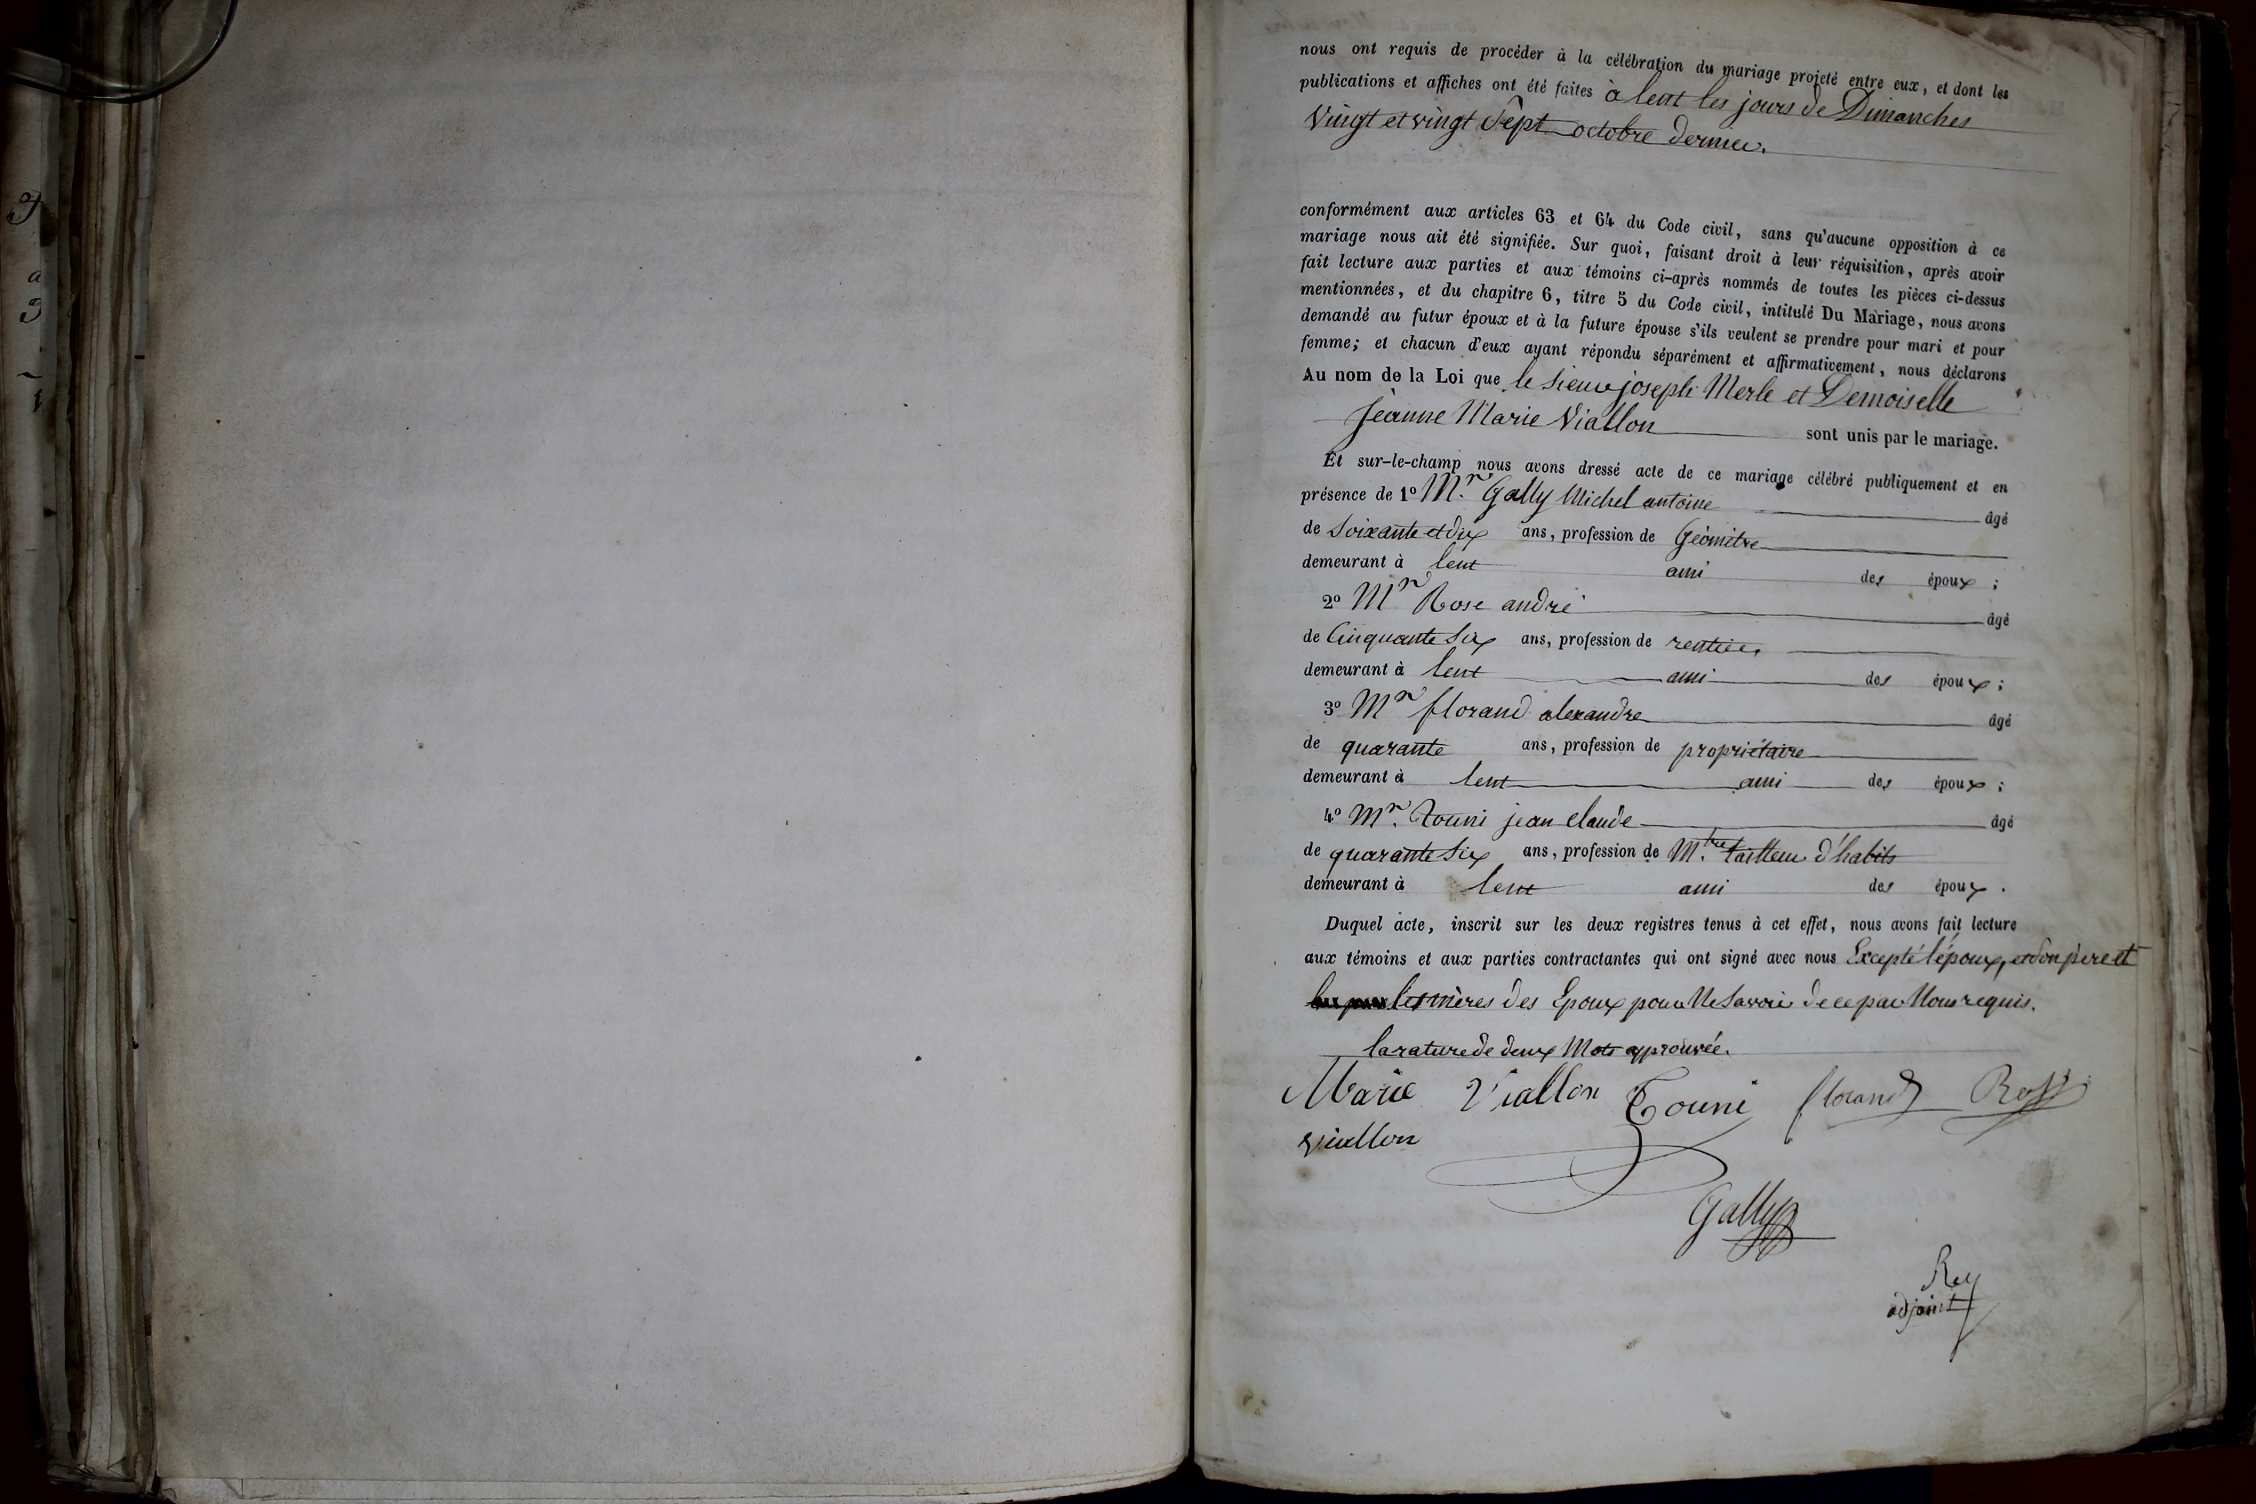 nous ont requis de procéder à la célébration du mariage projeté entre eux, et dont les
publications et affiches ont été faites à lent les jours de Dimanches
Vingt et vingt Sept octobre dernier.
conformément aux articles 63 et 64 du Code civil, sans qu'aucune opposition à ce
mariage nous ait été signifiée. Sur quoi, faisant droit à leur réquisition, après avoir
fait lecture aux parties et aux témoins ci-après nommés de toutes les pièces ci-dessus
mentionnées, et du chapitre 6, titre 5 du Code civil, intitulé Du Mariage, nous avons
demandé au futur époux et à la future épouse s'ils veulent se prendre pour mari et pour
femme; et chacun d'eux ayant répondu séparément et affirmativement, nous déclarons
Au nom de la Loi que le Sieur joseph Merle et Demoiselle
Jeanne Marie Viallon sont unis par le mariage.
Et sur-le-champ nous avons dressé acte de ce mariage célébré publiquement et en
présence de 1º Mr. Gally Michel antoine âgé
de Soixante et dix ans, profession de Géomètre
demeurant à lent ami des époux ;
2º Mr Rose andré âgé
de Cinquante Six ans, profession de rentier
demeurant à lent ami des époux ;
3º Mr florand alexandre âgé
de quarante ans, profession de propriétaire
demeurant à lent ami des époux ;
4º Mr. Touni jean claude âgé
de quarante Six ans, profession de M.tre tailleur d'habits
demeurant à lent ami des époux .
Duquel acte, inscrit sur les deux registres tenus à cet effet, nous avons fait lecture
aux témoins et aux parties contractantes qui ont signé avec nous Excepté l'époux, et Son père et
les mères des Epoux pour Ne Savoir de ce par Nous requis.
la rature de deux Mots approuvée.
Marie Viallon Touni florand Rose
viallon
Gally
Rey
adjoint